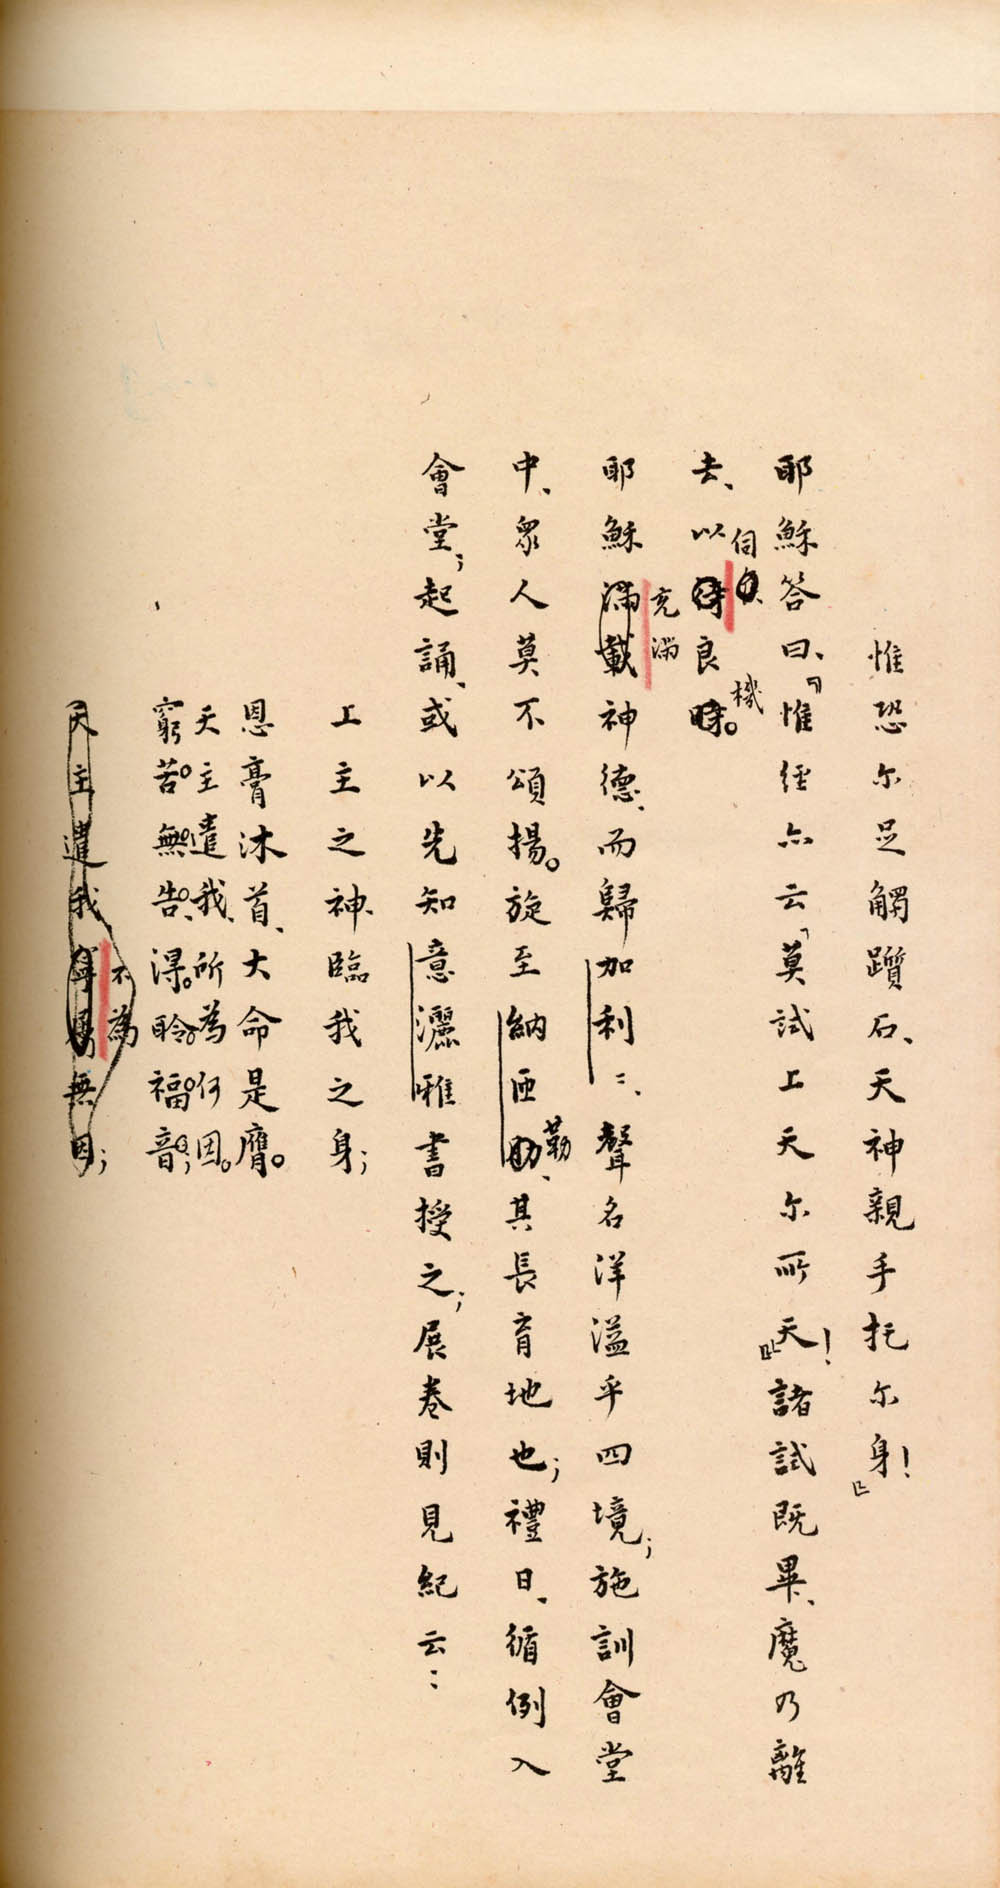 惟恐尔足觸躓石、天神親手托尔身！』
耶穌答曰、『惟經亦云「莫試上天尔所天！」』諸試既畢、魔乃離
伺
機
去、以待良時。
充滿
耶穌滿載神德、而歸加利：、聲名洋溢乎四境；施訓會堂
中、眾人莫不頌揚。旋至納匝肋、其長育地也；禮日、循例入
勒
會堂；起誦、或以先知意灑雅書授之；展卷則見紀云：
上主之神、臨我之身；
恩膏沐首、大命是膺。
天主遣我、所為何因。
窮苦無告、得聆福音；
不為
天主遣我寧為無因；